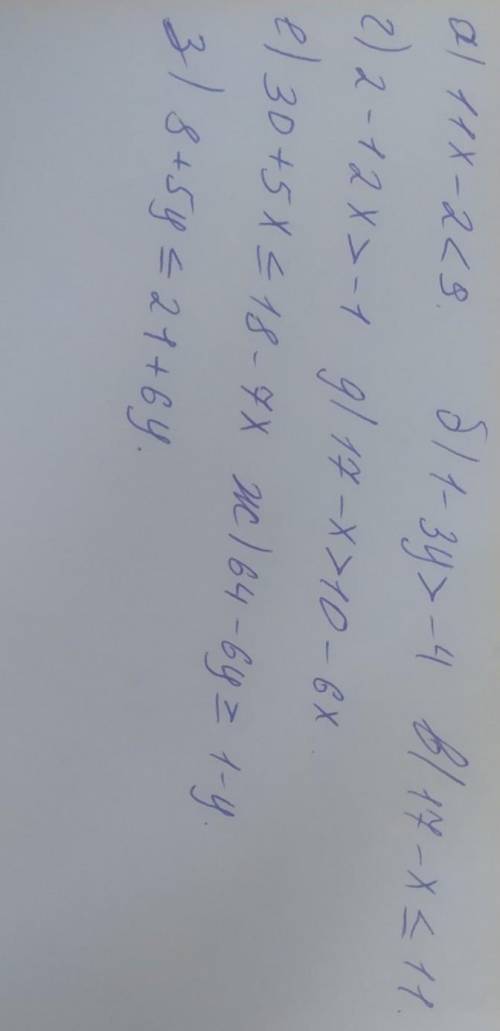 а) 11x - 2 < 9. б) 1 - 3y > -4 в) 17 - x ≤ 11.
г) 2 - 12x > -1 д) 17 - x > 10 - 6x
е) 30 + 5x ≤ 18 - 7x ж) 64 - 6y ≥ 1 - y.
з) 8 + 5y ≤ 21 + 6y.